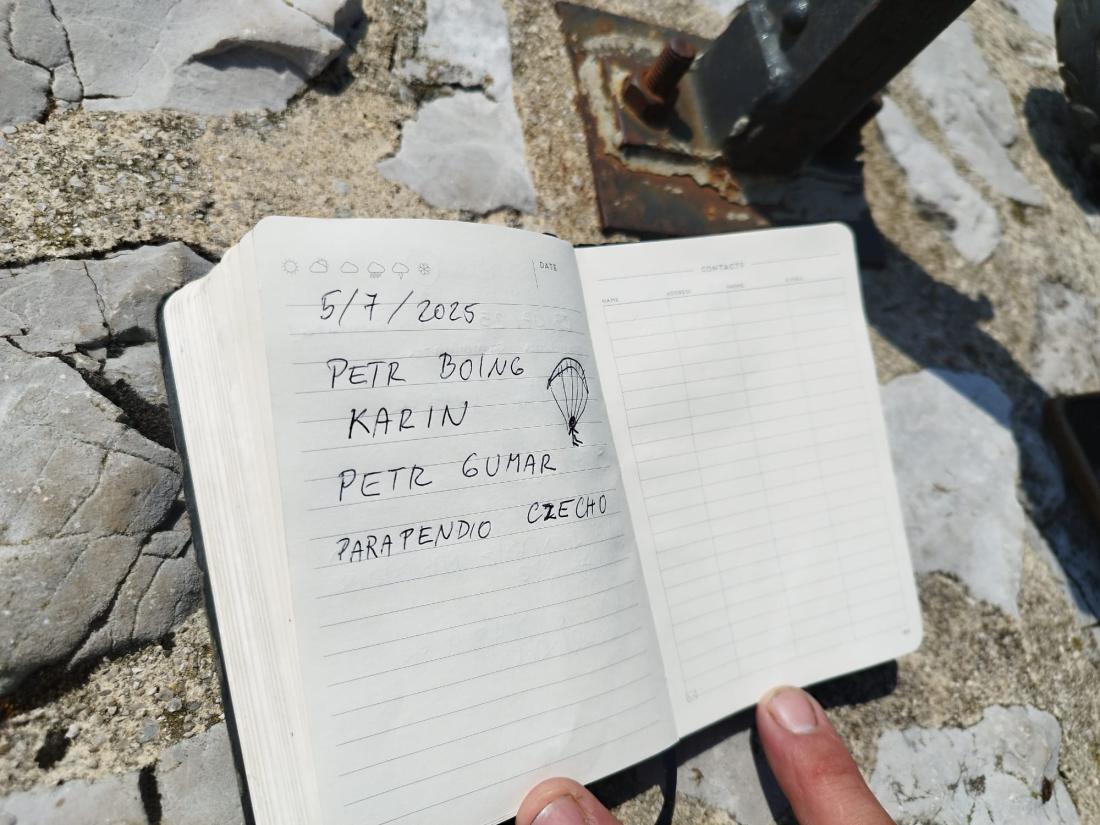 DATE
5/7/2025
PETR BOING
KARIN
PETR GUMAR
PARAPENDIO CZECHO
CONTACTS
NAME ADDRESS PHONE E-MAIL